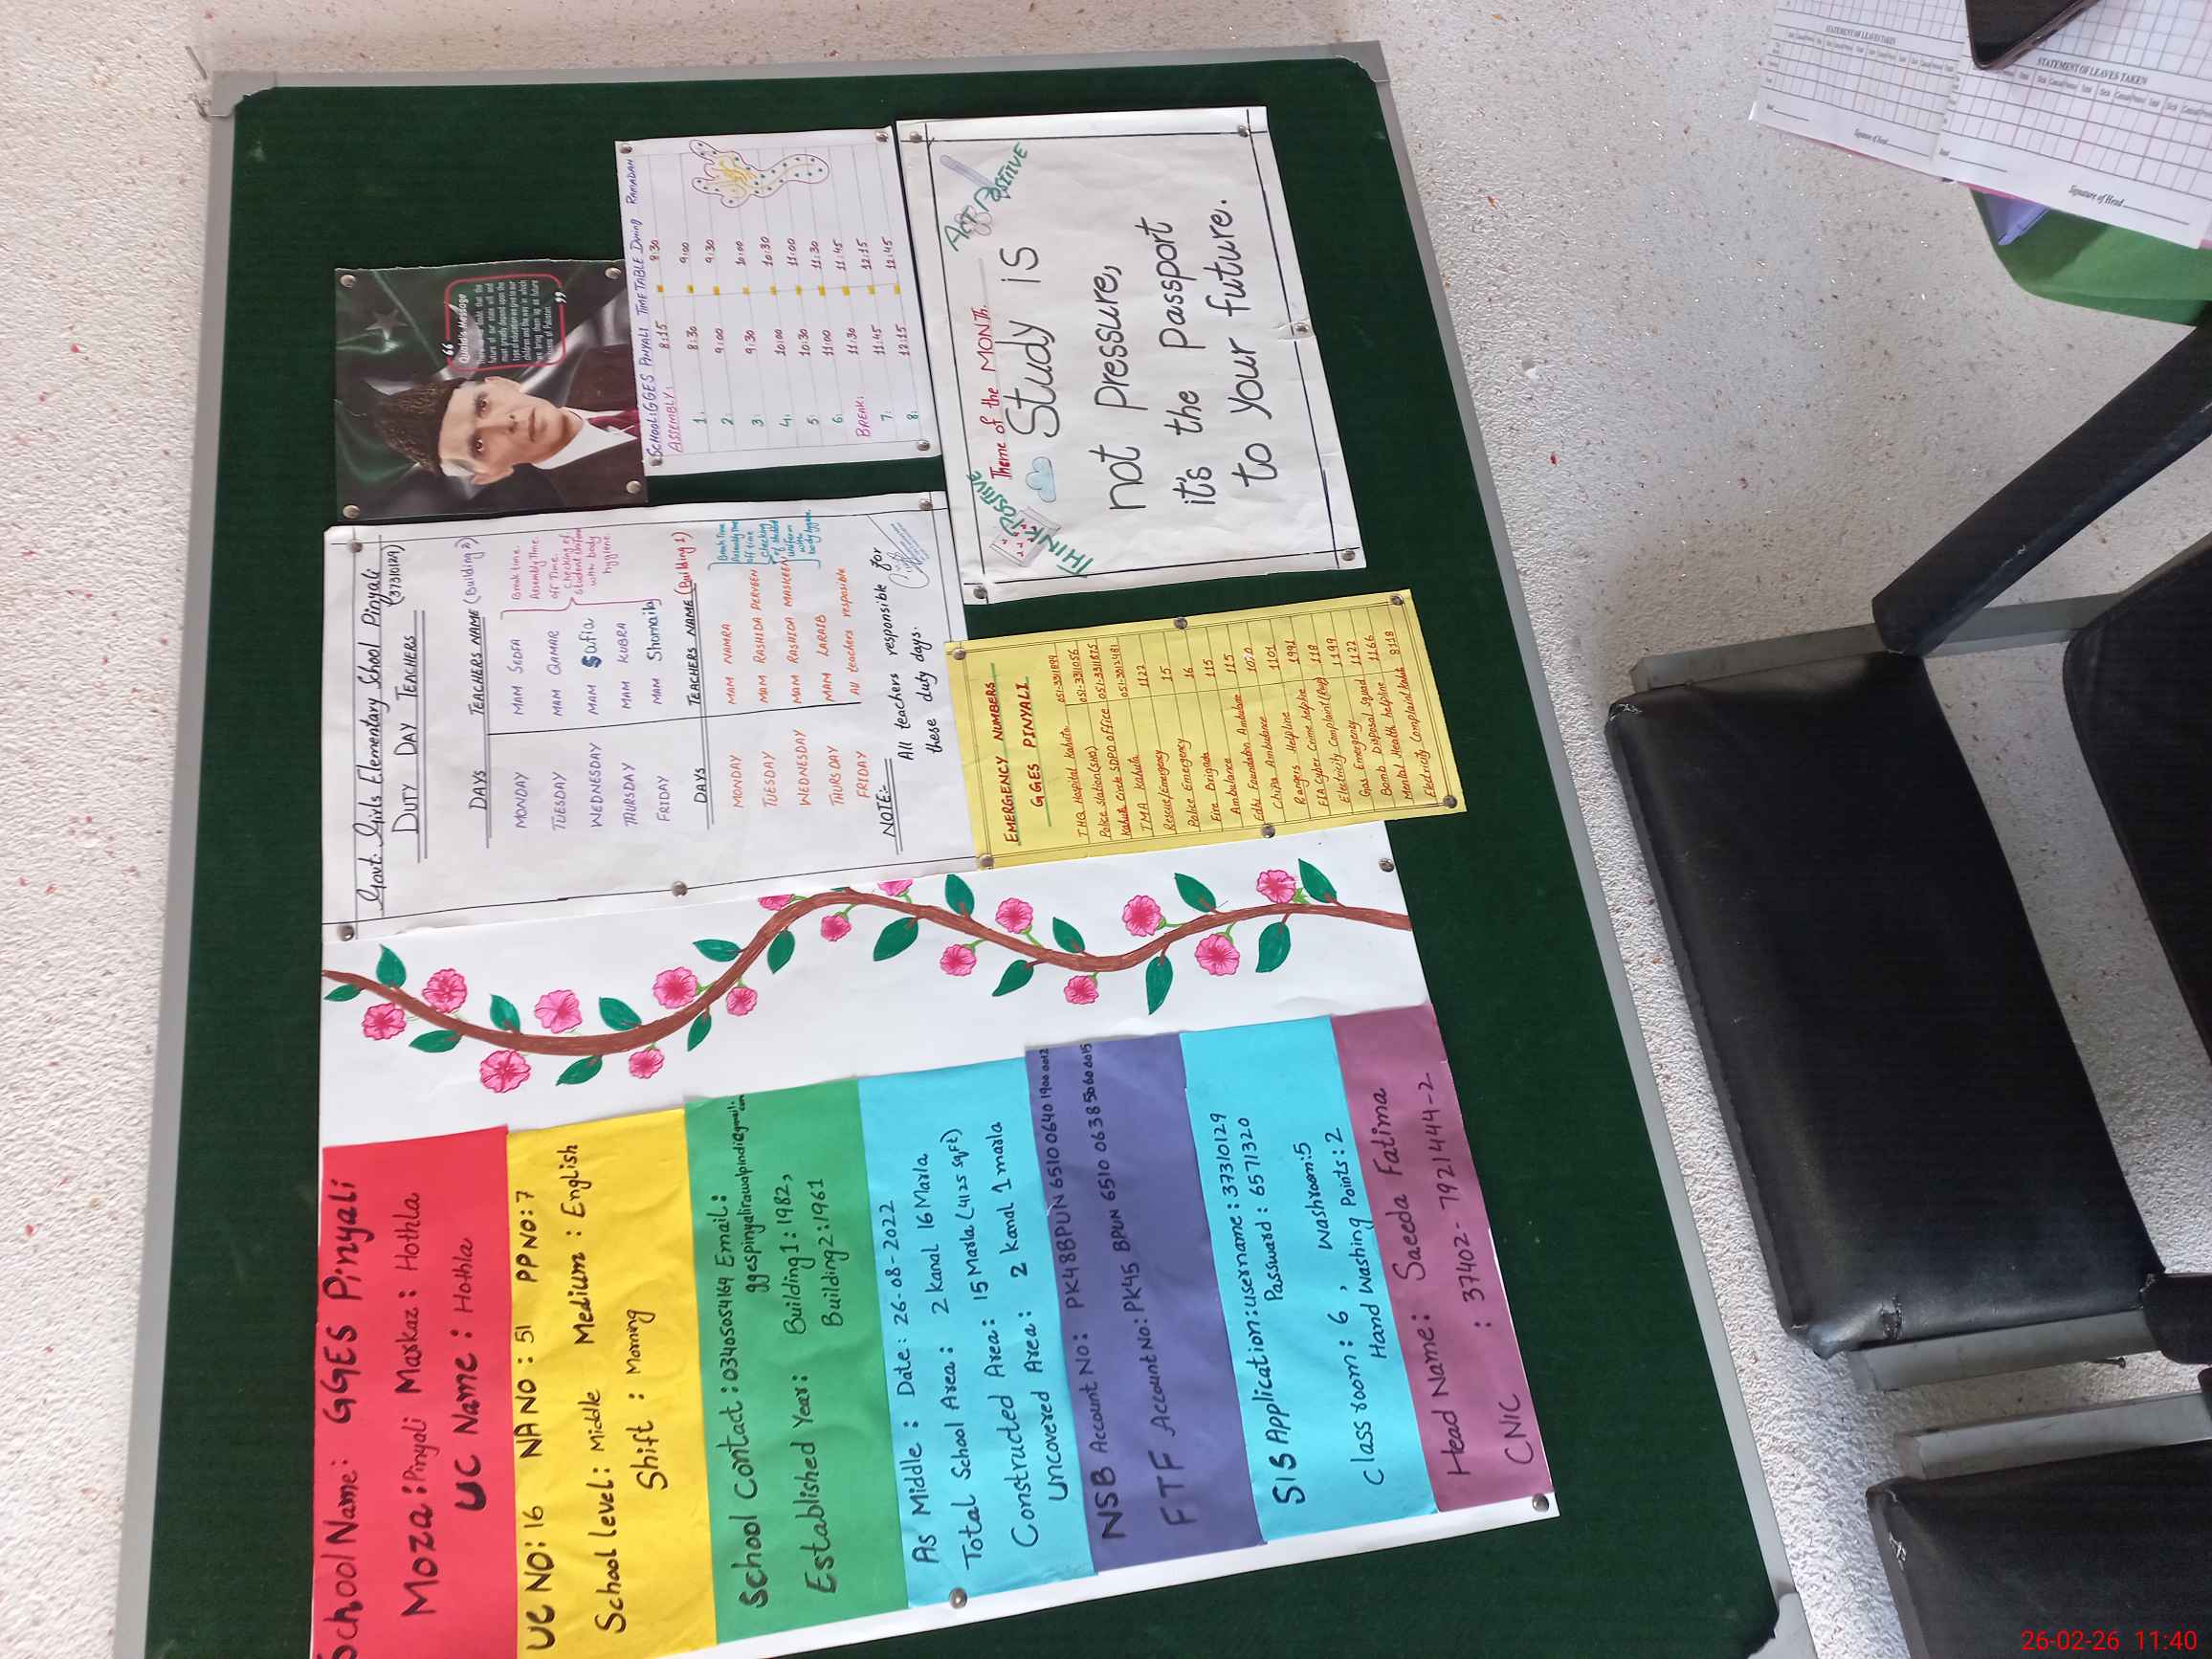 School Name: GGES Pinyali
Moza: Pinyali Markaz: Hothla
UC Name: Hothla
UC NO: 16 NA NO: 51 PP NO: 7
School level: Middle Medium: English
Shift: Morning
School Contact: 03405054164 Email:
ggespinyalirawalpindi@gmail.com
Established Year: Building 1: 1982,
Building 2: 1961
As Middle: Date: 26-08-2022
Total School Area: 2 kanal 16 Marla
Constructed Area: 15 Marla (4125 sqft)
Uncovered Area: 2 Kanal 1 marla
NSB Account No: PK48BPUN 6510 0640 1900 0012
FTF Account No: PK45 BPUN 6510 0638 5060 0015
SIS Application: username: 37310129
Passward: 6571320
Class room: 6, Washroom: 5
Hand Washing Points: 2
Head Name: Saeeda Fatima
CNIC : 37402-7921444-2
Govt. Girls Elementary School Pinyali
(37310129)
DUTY DAY TEACHERS
DAYS TEACHERS NAME (Building 2)
MONDAY MAM SEDFA
TUESDAY MAM QAMAR
WEDNESDAY MAM Safia
THURSDAY MAM KUBRA
FRIDAY MAM Shomaila
Break time.
Assembly Time.
off Time.
Checking of
student uniform
with body
hygiene.
DAYS TEACHERS NAME (Building 1)
MONDAY MAM NAMRA
TUESDAY MAM RASHIDA PERVEEN
WEDNESDAY MAM RASHIDA MASKEEN
THURSDAY MAM LARAIB
FRIDAY All teachers resposible
Break Time
Assembly Time
off time
Checking
of student
uniform
with
body hygiene.
NOTE:- All teachers responsible for
these duty days.
Quaid's Message
There is no doubt that the
future of our state will and
must greatly depend upon the
type of education we give to our
children and the way in which
we bring them up as future
citizens of Pakistan.
SCHOOL: GGES PINYALI TIME TABLE During RAMADAN
ASSEMBLY: 8:15 8:30
1: 8:30 9:00
2: 9:00 9:30
3: 9:30 10:00
4: 10:00 10:30
5: 10:30 11:00
6: 11:00 11:30
BREAK: 11:30 11:45
7: 11:45 12:15
8: 12:15 12:45
EMERGENCY NUMBERS
GGES PINYALI
THQ Hospital Kahuta 051-3311899
Police station (SHO) 051-3311056
Kahuta Circle SDPO office 051-3311875
TMA Kahuta 051-3312481
Rescue/Emergency 1122
Police Emergency 15
Fire Brigade 16
Ambulance 115
Edhi Foundation Ambulance 115
Chippa Ambulance 1020
Rangers Helpline 1101
FIA Cyber Crime helpline 1991
Electricity Complaint 118
Gas Emergency 1199
Bomb Disposal Squad 1122
Mental Health helpline 1166
Electricity Complaint 8118
THINK POSITIVE
ACT POSITIVE
Theme of the MONTH.
Study is
not Pressure,
it's the passport
to your future.
STATEMENT OF LEAVES TAKEN
Signature of Head
STATEMENT OF LEAVES TAKEN
Signature of Head
26-02-26 11:40